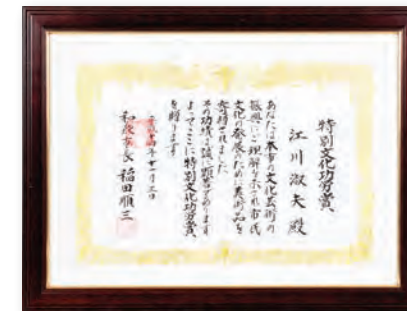 特別文化功労賞
江川淑夫殿
あなたは本市の文化芸術の
振興にご理解を示され市民
文化の発展のために美術品を
寄贈されました
その功績は誠に顕著であります
よってここに特別文化功労賞
を贈ります
年十一月三日
和泉市長 稲田順三